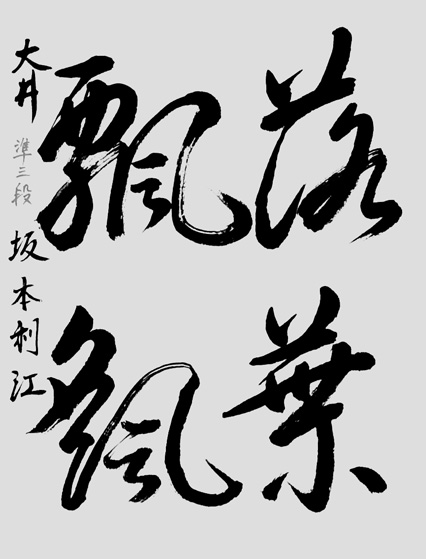 落葉
飄颻
大井 準三段 坂本利江